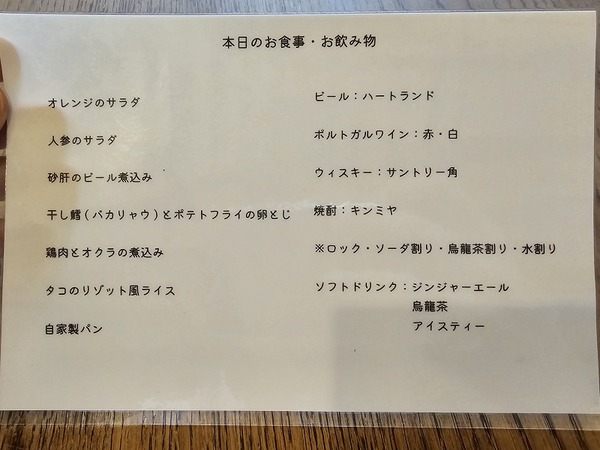 本日のお食事・お飲み物
オレンジのサラダ
人参のサラダ
砂肝のビール煮込み
干し鱈(バカリャウ)とポテトフライの卵とじ
鶏肉とオクラの煮込み
タコのリゾット風ライス
自家製パン
ビール：ハートランド
ポルトガルワイン：赤・白
ウィスキー：サントリー角
焼酎：キンミヤ
※ロック・ソーダ割り・烏龍茶割り・水割り
ソフトドリンク：ジンジャーエール
烏龍茶
アイスティー